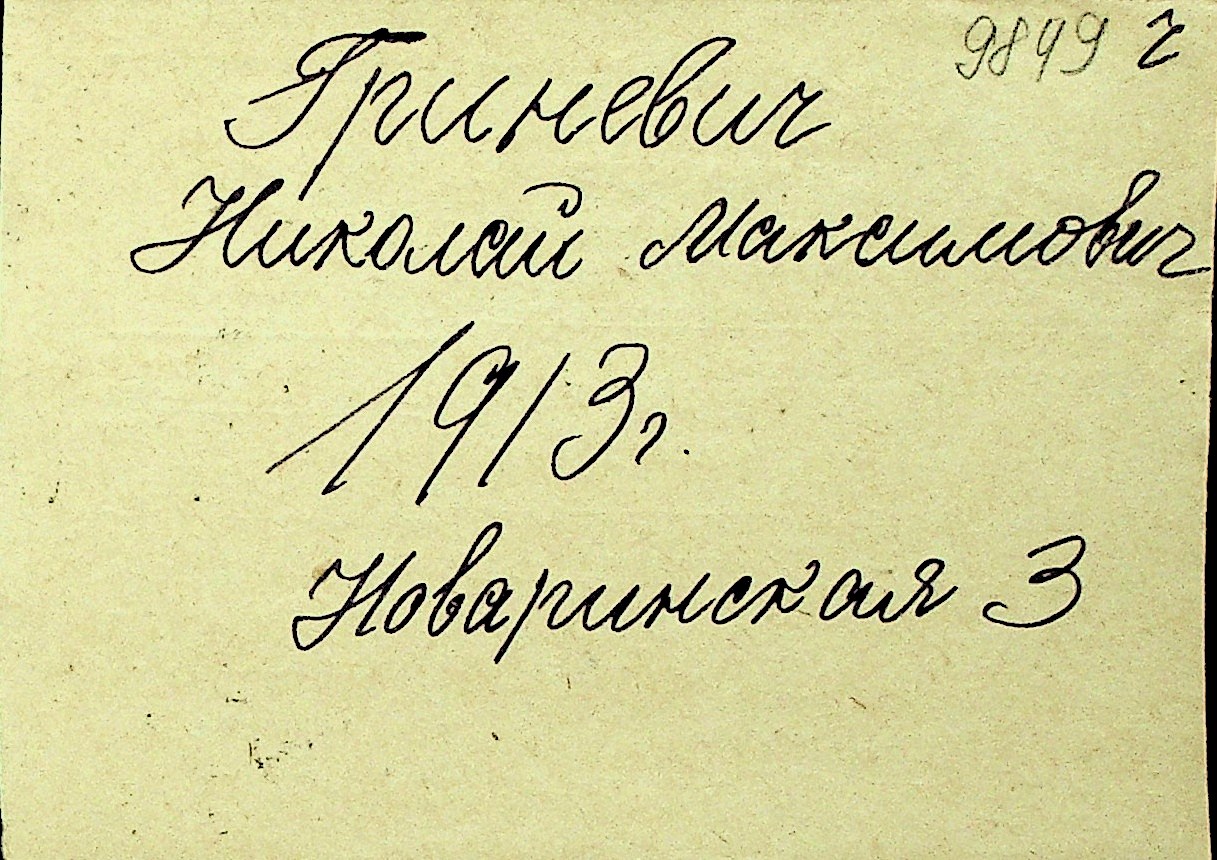 9849 г
Гриневич
Николай Максимович
1913 г.
Новаринская 3